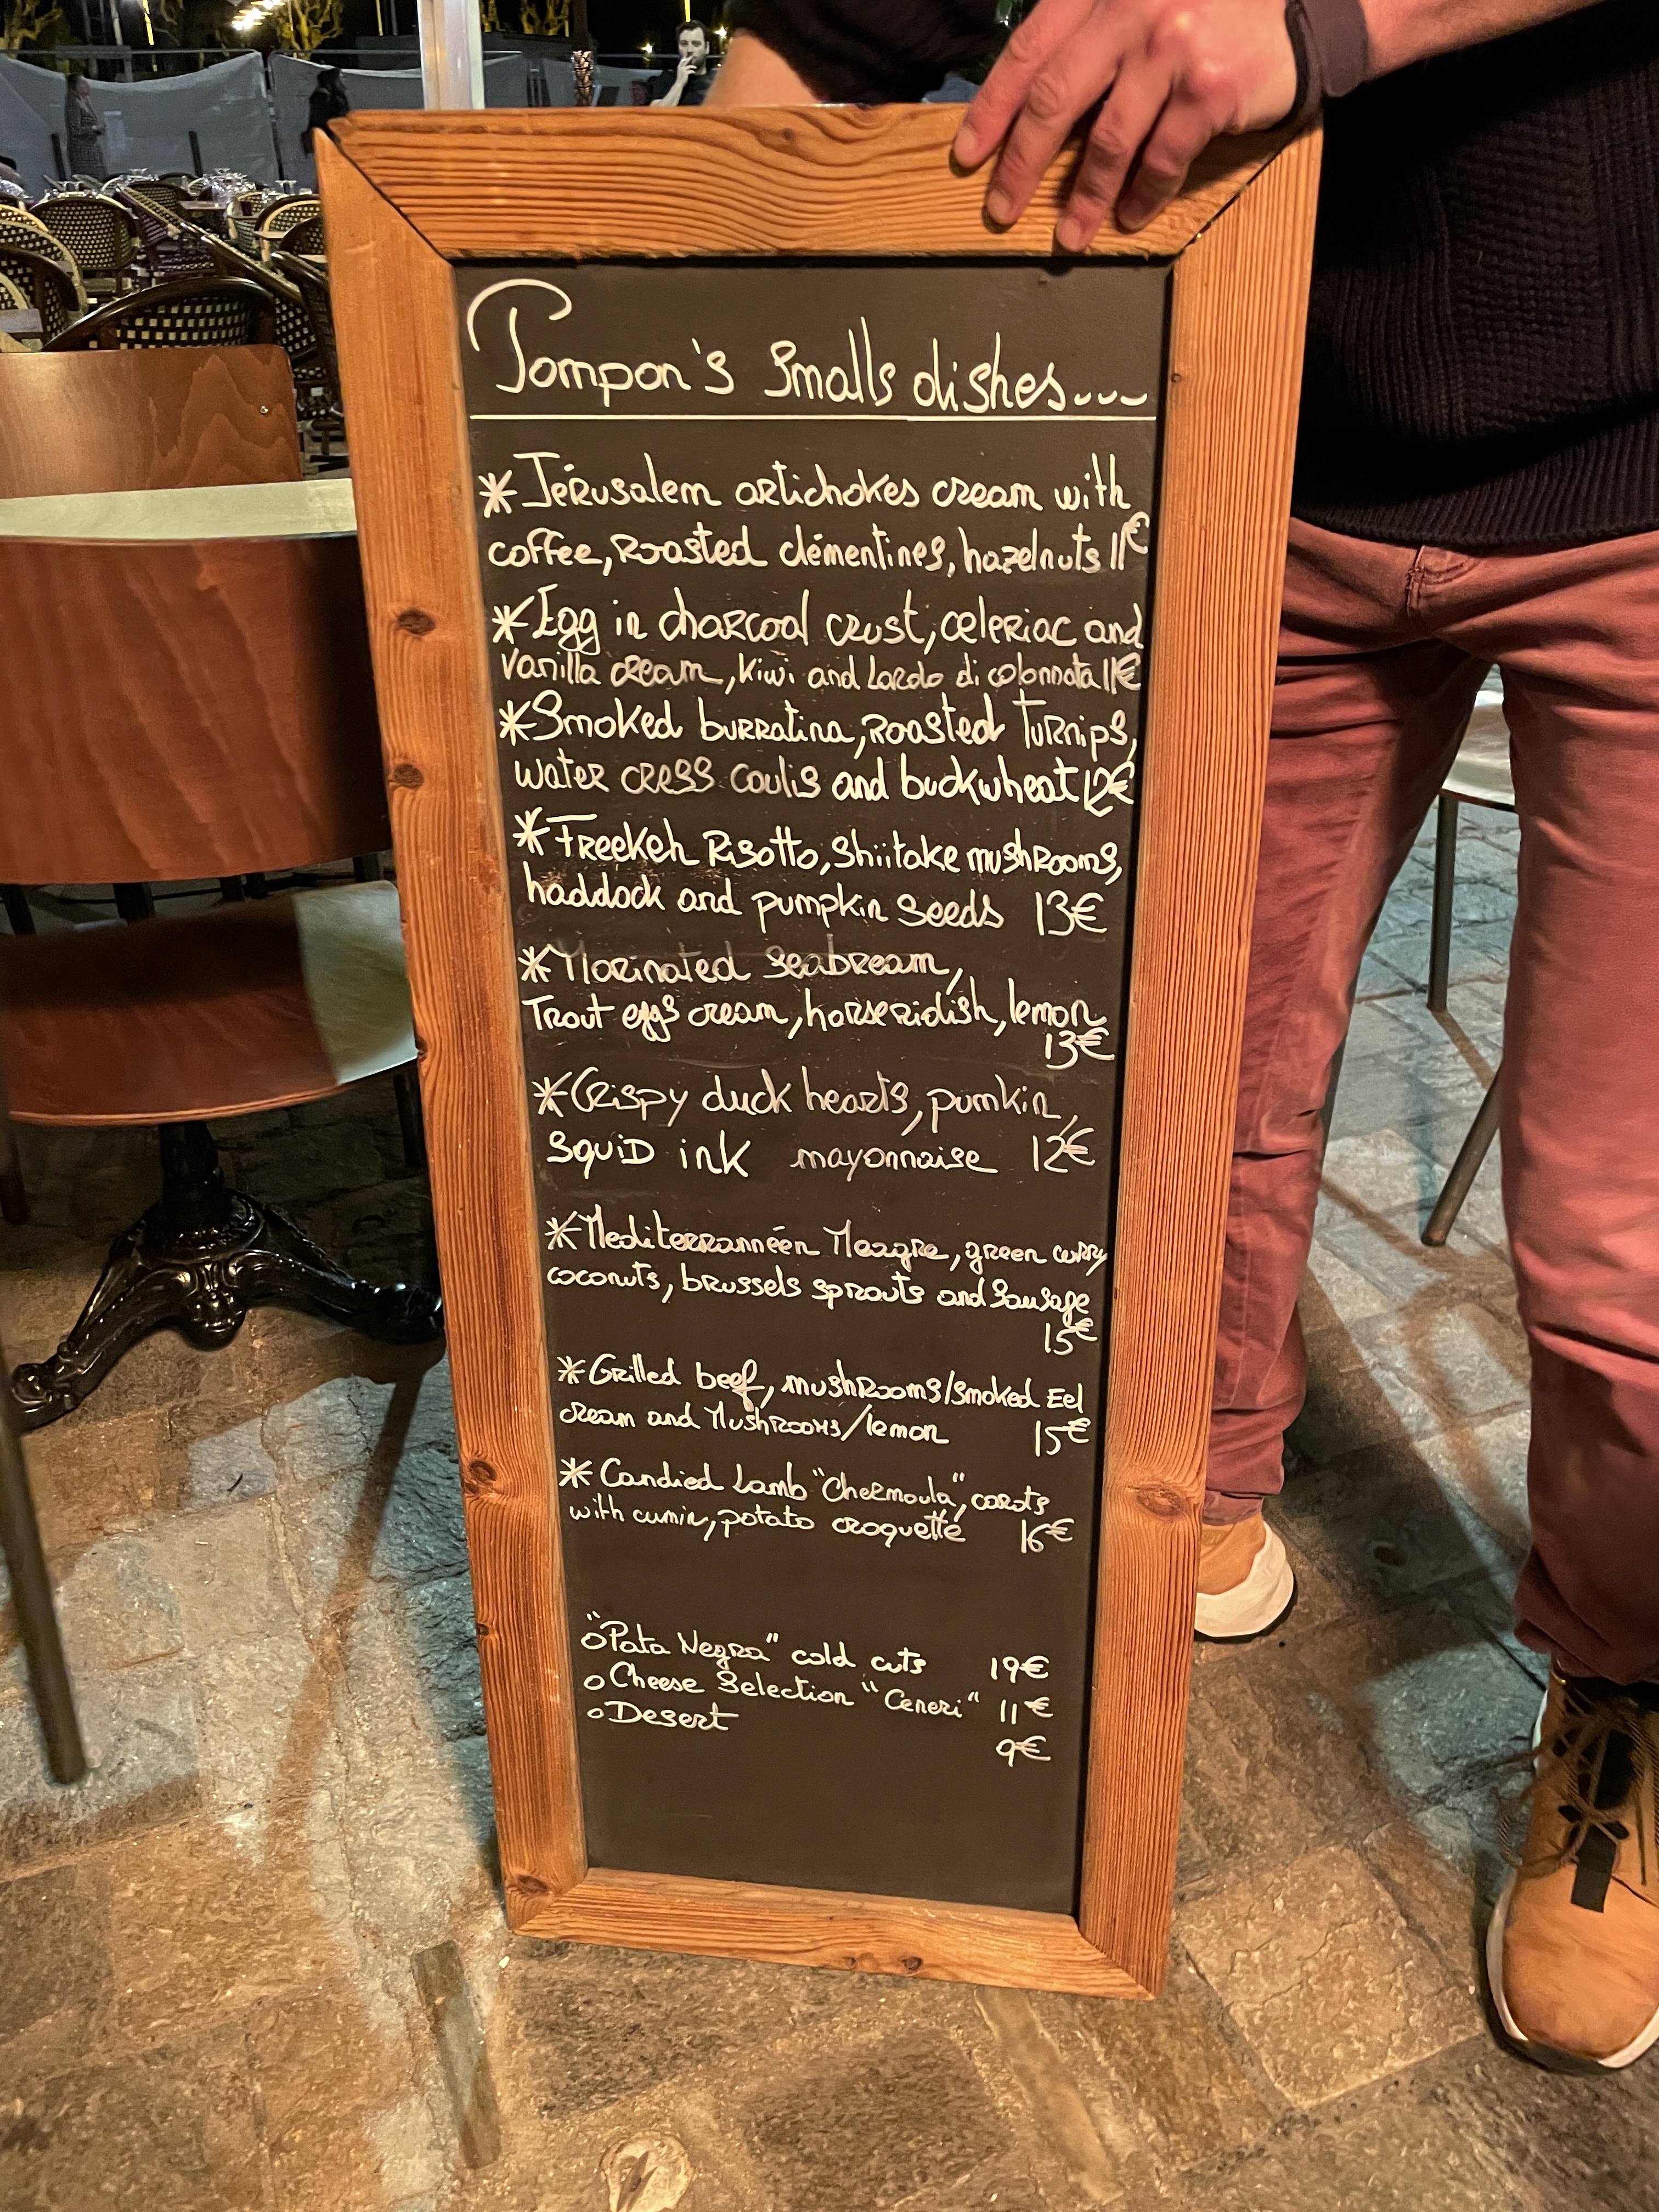 Pompon's Smalls dishes...
* Jérusalem artichokes cream with
coffee, Roasted clémentines, hazelnuts 11€
* Egg in charcoal crust, celeriac and
vanilla cream, kiwi and Lardo di colonnata 11€
* Smoked burratina, roasted Turnips,
water cress coulis and buckwheat 12€
* Freekeh Risotto, shiitake mushrooms,
haddock and pumpkin seeds 13€
* Marinated seabream,
Trout eggs cream, horseridish, lemon
13€
* Crispy duck hearts, pumkin,
squid ink mayonnaise 12€
* Mediterrannéen Meagre, green curry
coconuts, brussels sprouts and sausage
15€
* Grilled beef, mushrooms/smoked Eel
cream and Mushrooms/lemon 15€
* Candied Lamb "Chermoula", carots
with cumin, potato croquette 16€
o "Pata Negra" cold cuts 19€
o Cheese Selection "Ceneri" 11€
o Desert
9€